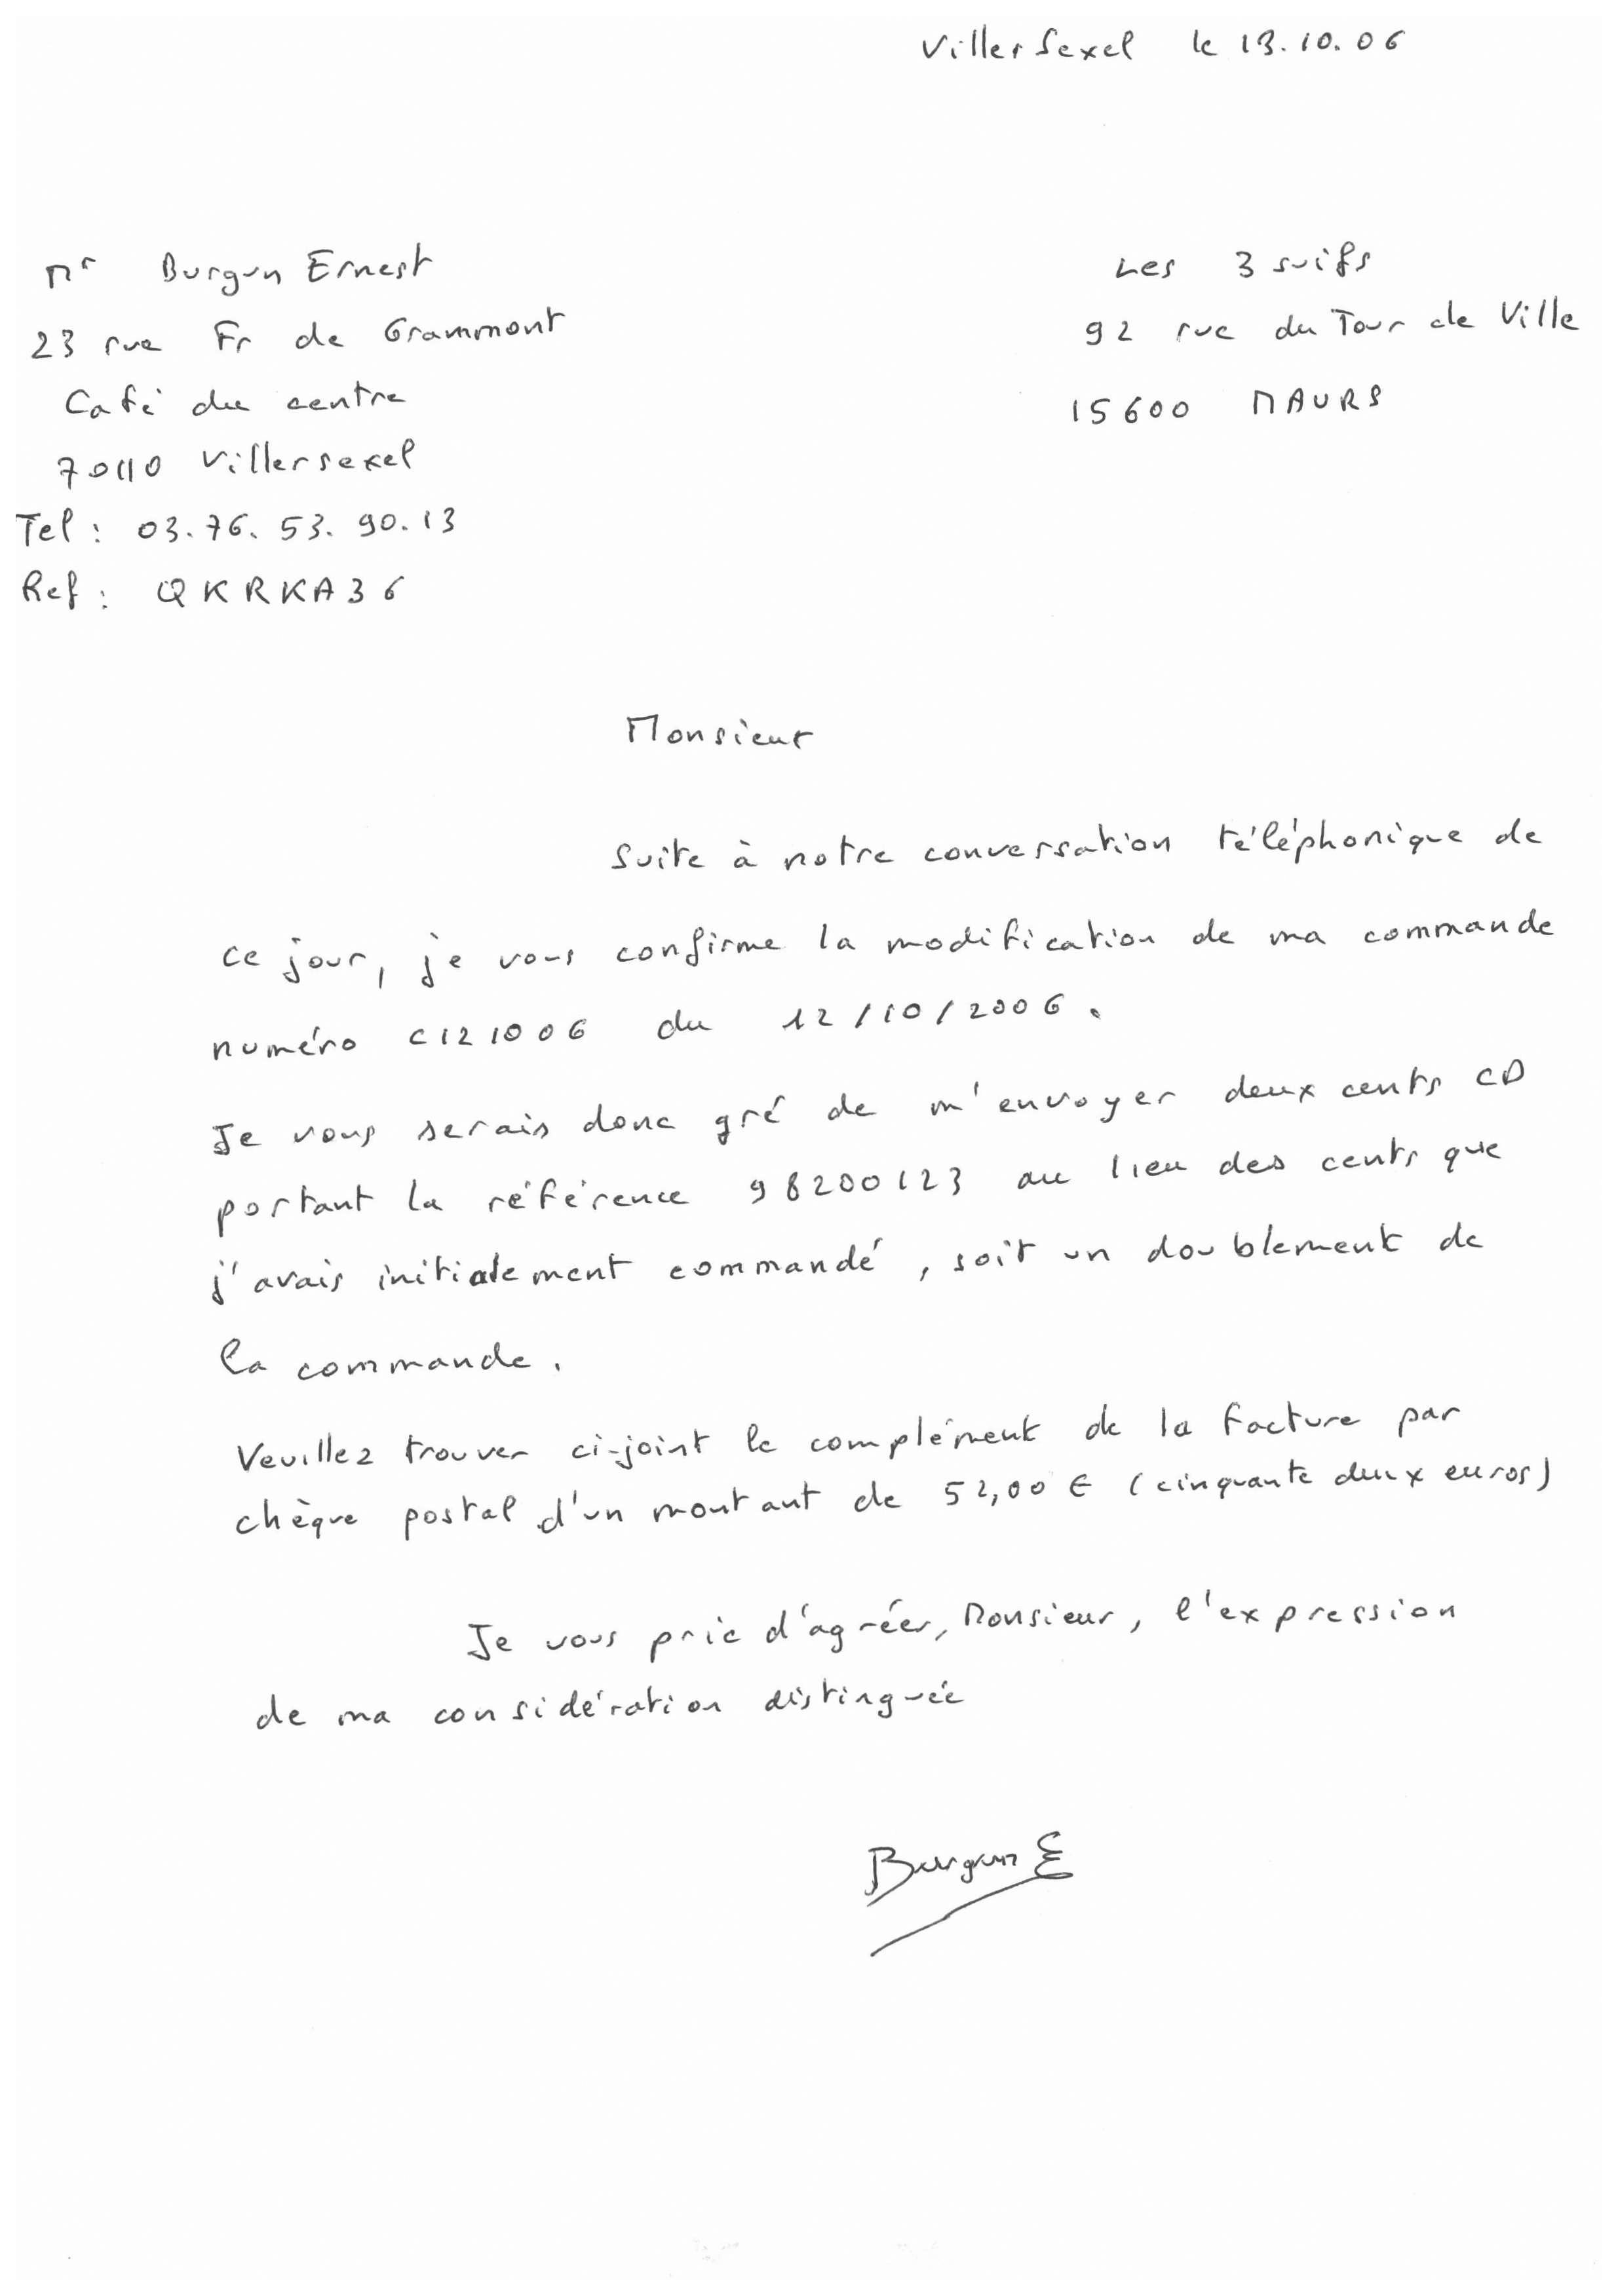 Villersexel le 13.10.06
Mr Burgun Ernest
23 rue Fr de Grammont
Café du centre
70110 Villersexel
Tel : 03.76.53.90.13
Ref : QKRKA36
Les 3 suifs
92 rue du Tour de Ville
15600 MAURS
Monsieur
Suite à notre conversation téléphonique de
ce jour, je vous confirme la modification de ma commande
numéro C121006 du 12/10/2006.
Je vous serais donc gré de m'envoyer deux cents CD
portant la référence 98200123 au lieu des cents que
j'avais initialement commandé, soit un doublement de
la commande.
Veuillez trouver ci-joint le complément de la facture par
chèque postal d'un montant de 52,00 € (cinquante deux euros)
Je vous prie d'agréer, Monsieur, l'expression
de ma considération distinguée
Burgun E